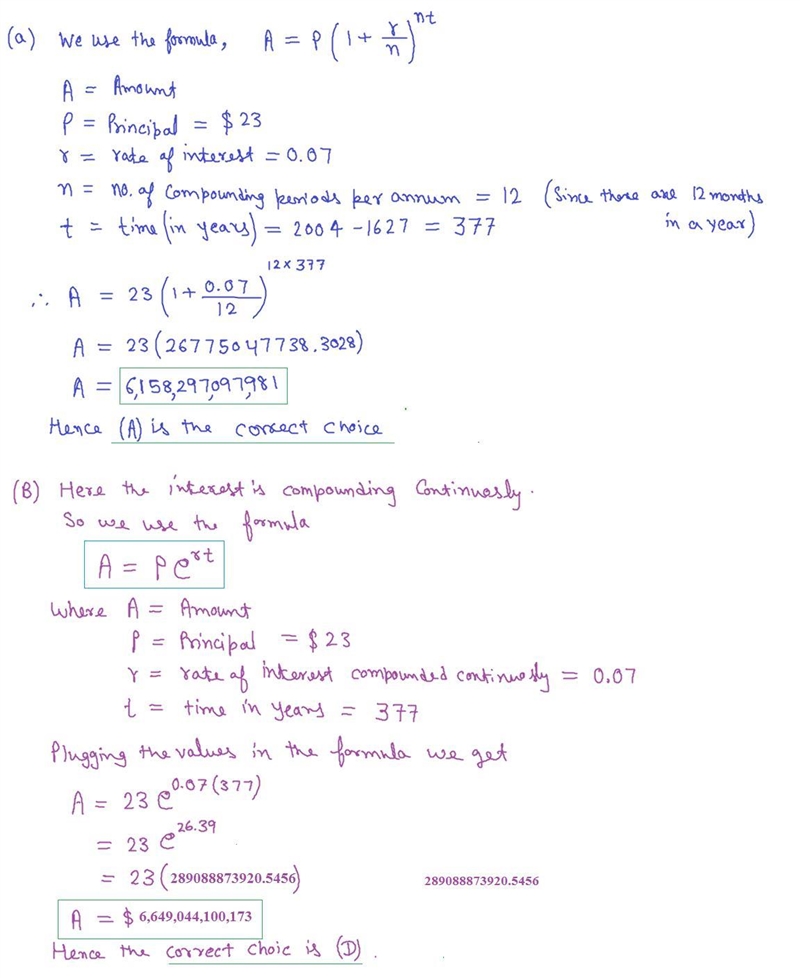 (a) We use the formula, A = P (1 + r/n)^nt
A = Amount
P = Principal = $ 23
r = rate of interest = 0.07
n = no. of Compounding periods per annum = 12 (Since there are 12 months in a year)
t = time (in years) = 2004 - 1627 = 377
∴ A = 23 (1 + 0.07/12)^12 x 377
A = 23 (26775047738.3028)
A = 6,158,297,097,981
Hence (A) is the correct choice
(B) Here the interest is compounding Continuosly.
So we use the formula
A = P e^rt
Where A = Amount
P = Principal = $ 23
r = rate of interest compounded continuosly = 0.07
t = time in years = 377
Plugging the values in the formula we get
A = 23 e^0.07 (377)
= 23 e^26.39
= 23 (289088873920.5456) 289088873920.5456
A = $ 6,649,044,100,173
Hence the correct choic is (D).